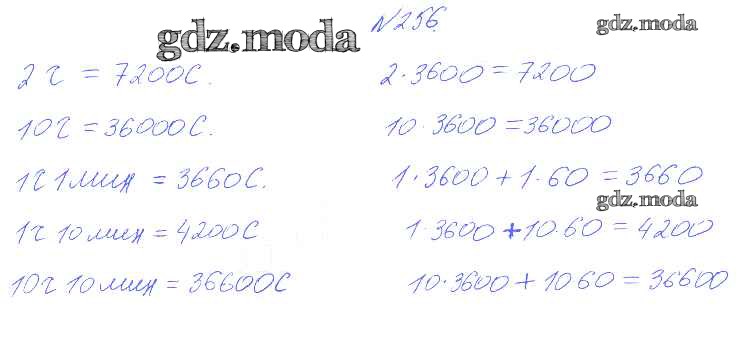 №256.
gdz.moda
gdz.moda
2 ч = 7200С. 2·3600=7200
10ч=36000С. 10·3600=36000
1ч 1мин = 3660С. 1·3600+1·60=3660
gdz.moda
1ч 10мин=4200С 1·3600+10·60=4200
10ч 10мин=36600С 10·3600+10 60=36600